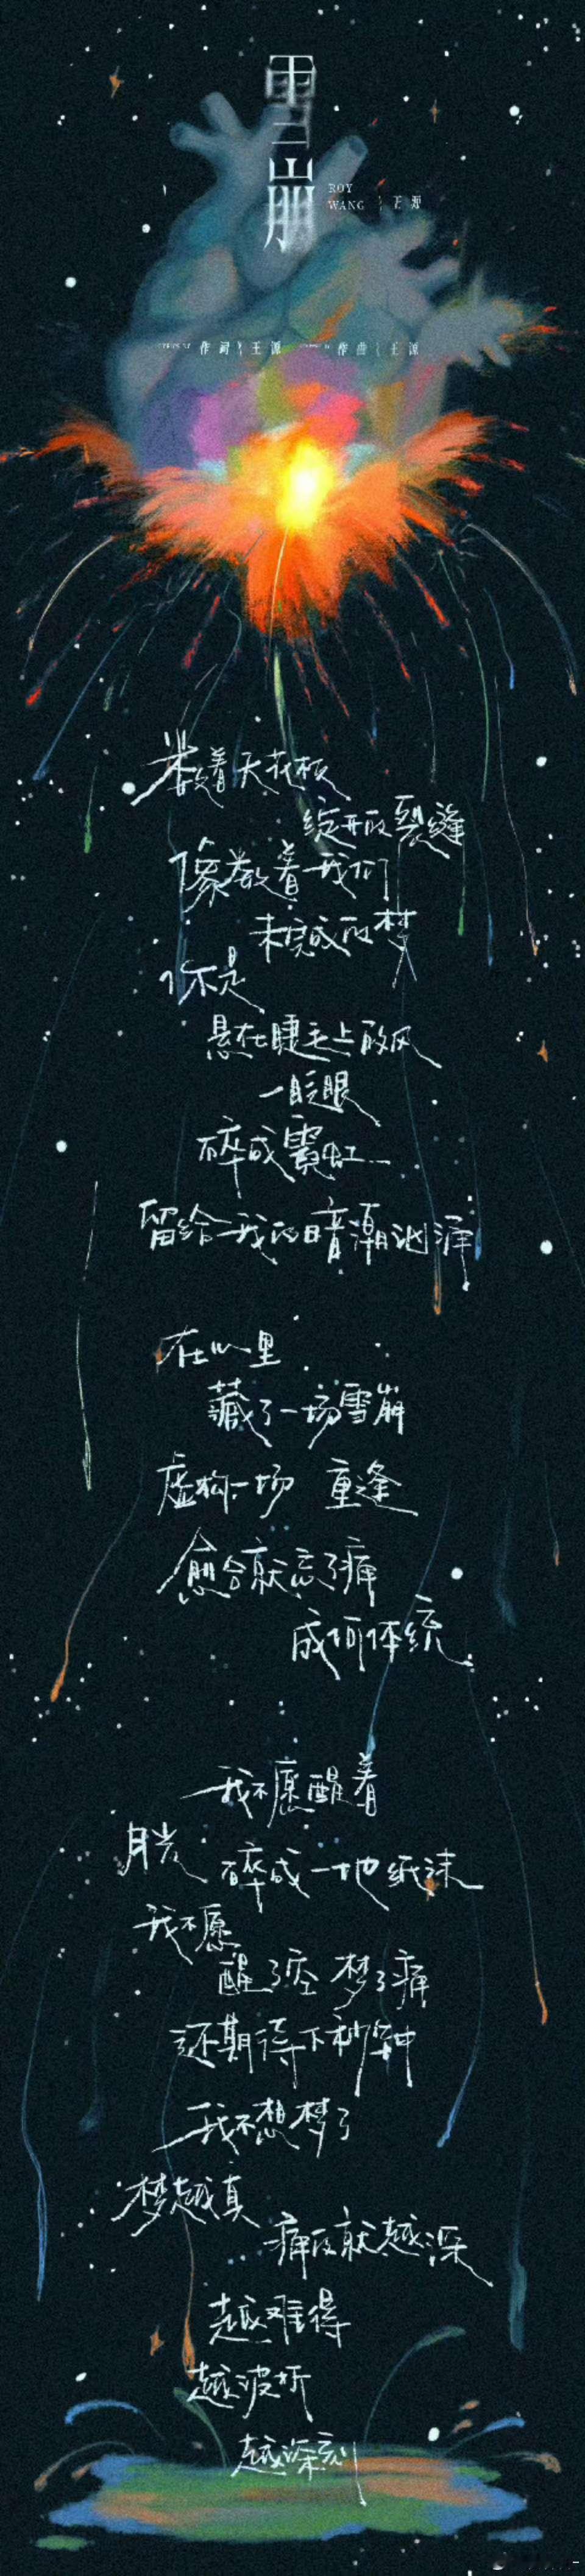 雪崩
ROY
WANG
王源
作词 王源 作曲 王源
数着天花板
绽开的裂缝
像数着我们
未完成的梦
你不是
悬在睫毛上的风
一眨眼
碎成霓虹
留给我的暗潮汹涌
在心里
藏了一场雪崩
虚构一场 重逢
愈合就忘了痛
成何体统
我不愿醒着
月光 碎成一地纸沫
我不愿
醒了空 梦了痛
还期待下秒钟
我不想梦了
梦越真
痛的就越深
越难得
越波折
越深刻